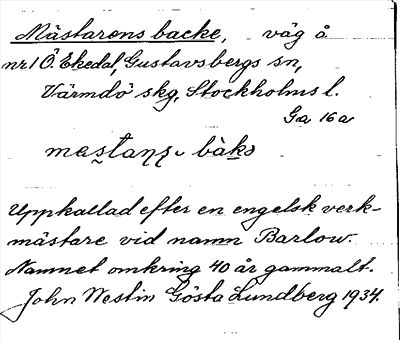 Mästarens backe, väg å
nr 1 Ö. Ekedal, Gustavsbergs sn,
Värmdö skg, Stockholms l.
Ga 16 a
Uppkallad efter en engelsk verk-
mästare vid namn Barlow.
Namnet omkring 40 år gammalt.
John Westin Gösta Lundberg 1934.